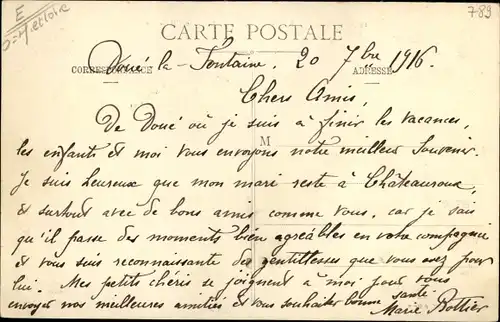 E
789
CARTE POSTALE
Doué-la-Fontaine, 20 7bre 1916.
CORRESPONDANCE ADRESSE
Chers Amis,
De Doué où je suis à finir les vacances,
M
les enfants et moi vous envoyons notre meilleur souvenir.
Je suis heureuse que mon mari reste à Châteauroux,
et surtout avec de bons amis comme vous, car je sais
qu'il passe des moments bien agréables en votre compagnie
et vous suis reconnaissante des gentillesses que vous avez pour
lui. Mes petits chéris se joignent à moi pour vous
envoyer nos meilleures amitiés et vous souhaiter bonne santé.
Marie